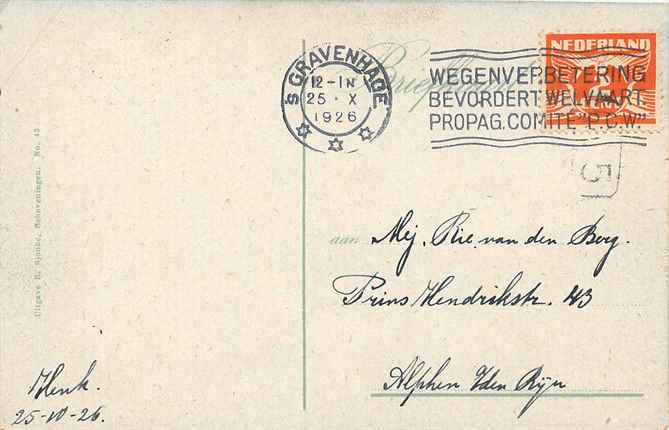 Briefkaart
'S GRAVENHAGE
12-1N
25 · X
1926
WEGENVERBETERING
BEVORDERT WELVAART.
PROPAG. COMITÉ "P.C.W."
NEDERLAND
5
aan Mej. Rie van den Berg.
Prins Hendrikstr. 43
Alphen a/den Rijn
Henk.
25-10-26.
Scheveningen. No. 43